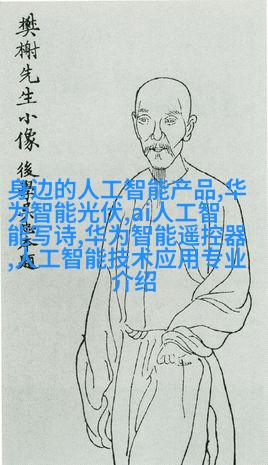 樊榭先生小像
後學
身边的人工智能产品,华
为智能光伏,ai人工智
能写诗,华为智能遥控器
,人工智能技术应用专业
介绍